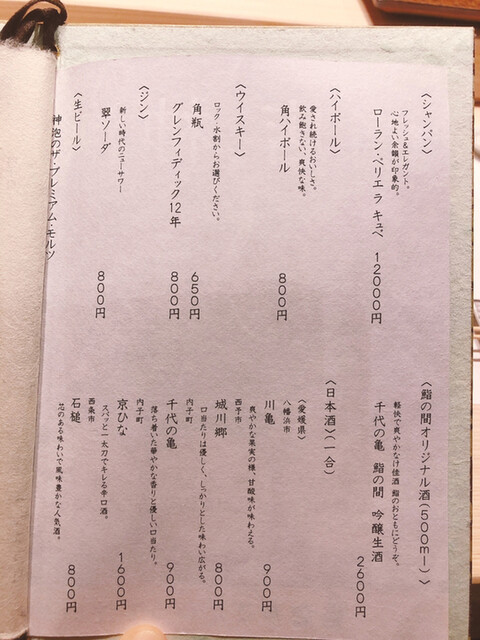 〈シャンパン〉
フレッシュ&エレガント。
心地よい余韻が印象的。
ローラン・ペリエ ラ キュベ 12000円
〈ハイボール〉
愛され続けるおいしさ。
飲み飽きない、爽快な味。
角ハイボール 800円
〈ウイスキー〉
ロック・水割からお選びください。
角瓶 650円
グレンフィディック12年 800円
〈ジン〉
新しい時代のニューサワー
翠ソーダ 800円
〈生ビール〉
神泡のザ・プレミアム・モルツ
〈鮨の間オリジナル酒(500ml)〉
軽快で爽やかなけ佳酒 鮨のおともにどうぞ。
千代の亀 鮨の間 吟醸生酒 2600円
〈日本酒〉(一合)
〈愛媛県〉
八幡浜市
川亀 900円
爽やかな果実の様、甘酸味が味わえる。
西予市
城川郷 800円
口当たりは優しく、しっかりとした味わい広がる。
内子町
千代の亀 900円
落ち着いた華やかな香りと優しい口当たり。
内子町
京ひな 1600円
スパッと一太刀でキレる辛口酒。
西条市
石鎚 800円
芯のある味わいで風味豊かな人気酒。